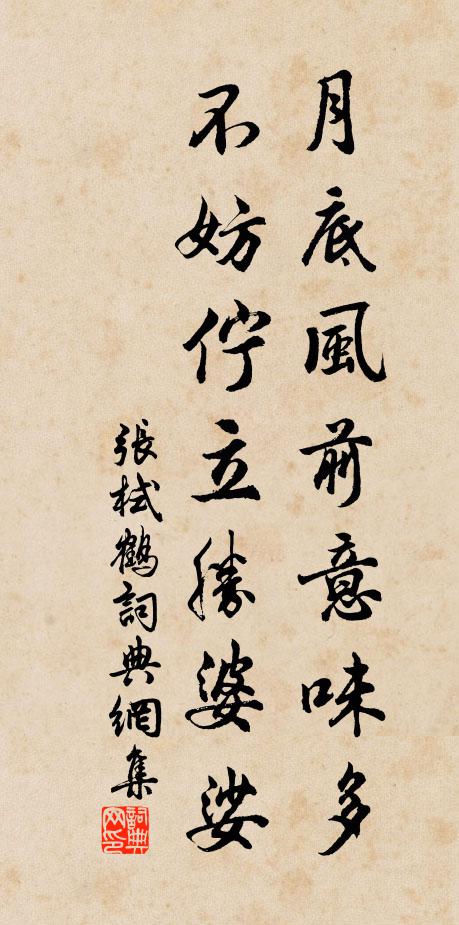 月底風前意味多
不妨佇立勝婆娑
張栻鶴詞典網集
詞典
网印